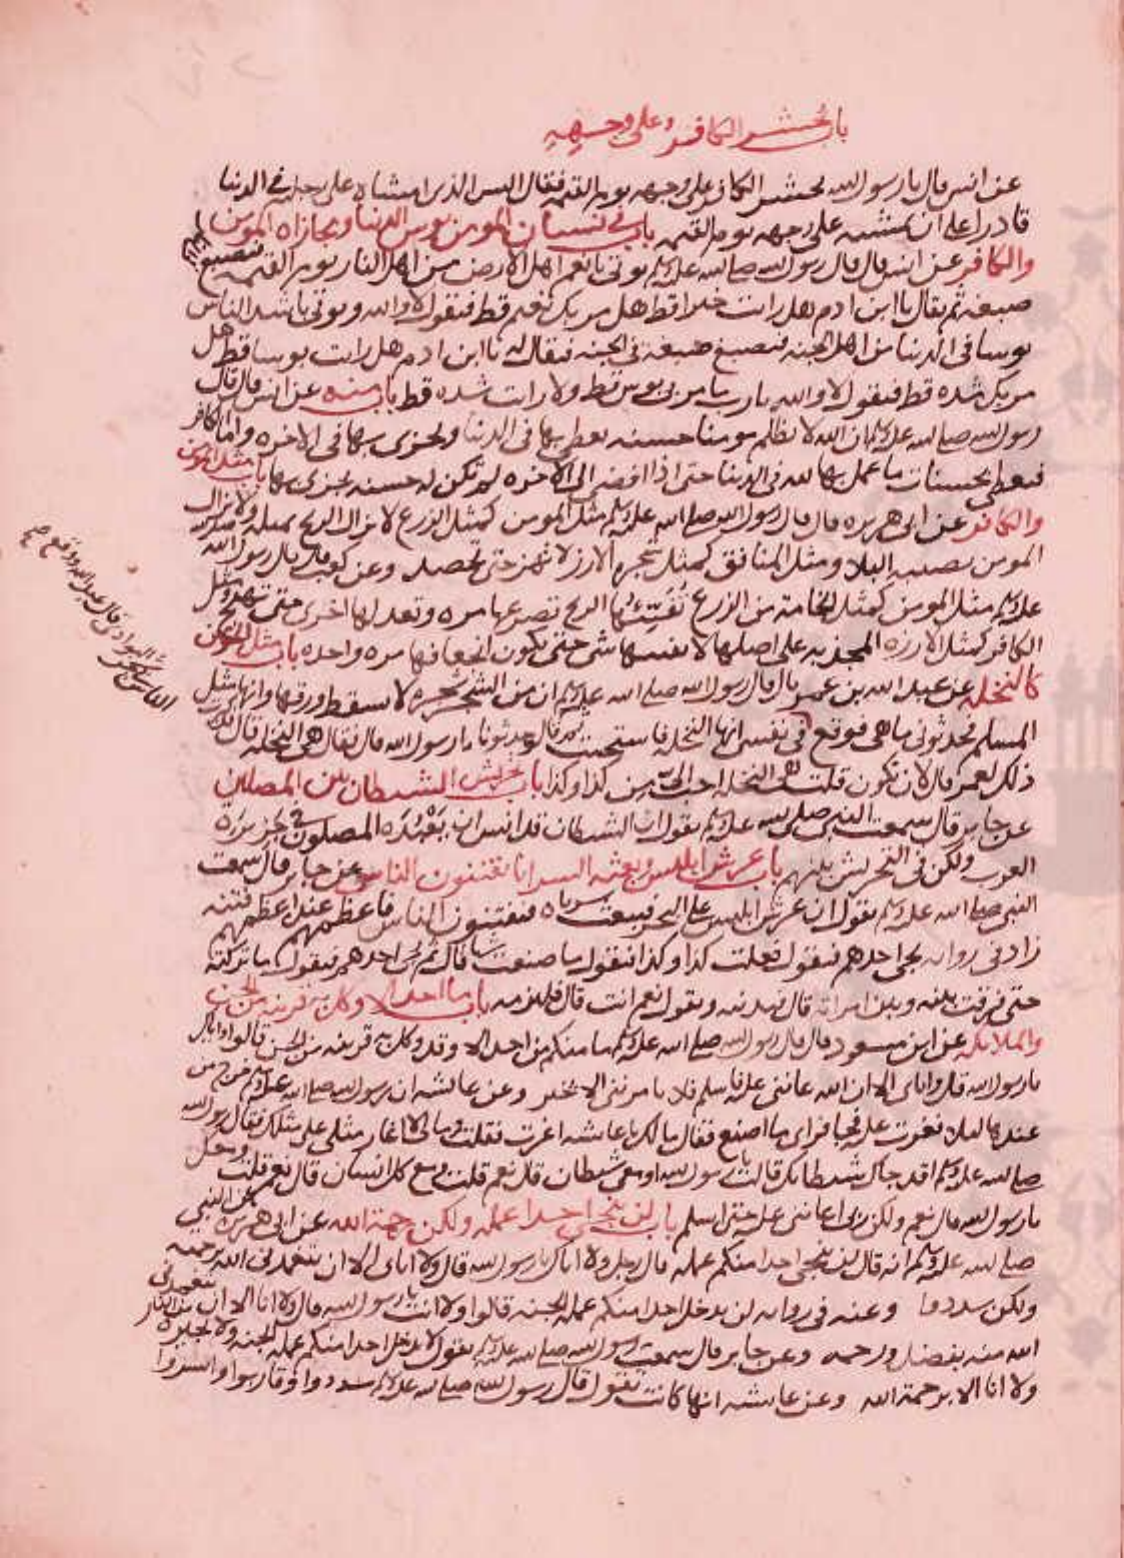 باب يحشر الكافر على وجهه
عن انس قال يا رسول الله يحشر الكافر على وجهه يوم القيمة فقال اليس الذي امشاه على رجليه في الدنيا
قادرا على ان يمشيه على وجهه يوم القيمة باب في نسيان المومن بوس الدنيا ومجازاه المومن
والكافر عن انس قال قال رسول الله صلى الله عليه وسلم يوتى بانعم اهل الارض من اهل النار يوم القيمة فيصبغ في النار
صبغة ثم يقال يا ابن ادم هل رايت خيرا قط هل مر بك نعيم قط فيقول لا والله ويوتى باشد الناس
بوسا في الدنيا من اهل الجنة فيصبغ صبغة في الجنة فيقال له يا ابن ادم هل رايت بوسا قط هل
مر بك شده قط فيقول لا والله يا رب ما مر بي بوس قط ولا رايت شده قط باب منه عن انس قال قال
رسول الله صلى الله عليه وسلم ان الله لا يظلم مومنا حسنة يعطى بها في الدنيا ويجزى بها في الاخره واما الكافر
فيعطى بحسنات ما عمل بها لله في الدنيا حتى اذا افضى الى الاخره لم تكن له حسنه يجزى بها باب مثل المومن
والكافر عن ابي هريره قال قال رسول الله صلى الله عليه وسلم مثل المومن كمثل الزرع لا تزال الريح تميله ولا يزال
المومن يصيبه البلا ومثل المنافق كمثل شجره الارز لا تهتز حتى تحصد وعن كعب قال قال رسول الله
عليه وسلم مثل المومن كمثل الخامة من الزرع تُفَيِّئُها الريح تصرعها مره وتعدلها اخرى حتى تهيج ومثل
الكافر كمثل الارزه المجذيه على اصلها لا يفيها شي حتى يكون انجعافها مره واحده باب مثل المومن
كالنخله عن عبد الله بن عمر قال قال رسول الله صلى الله عليه وسلم ان من الشجر شجره لا يسقط ورقها وانها مثل
المسلم فحدثوني ما هي فوقع في نفسي انها النخله فاستحييت ثم قالوا حدثونا يا رسول الله قال فقال هي النخله قال فذكرت
ذلك لعمر قال لان تكون قلت هي النخله احب الي من كذا وكذا باب تحريش الشيطان بين المصلين
عن جابر قال سمعت النبي صلى الله عليه وسلم يقول ان الشيطان قد ايس ان يَعْبُدَه المصلون في جزيرة
العرب ولكن في التحريش بينهم باب عرش ابليس وبعثه السرايا تفتنون الناس عن جابر قال سمعت
النبي صلى الله عليه وسلم يقول ان عرش ابليس على البحر فيبعث سراياه فيفتنون الناس فاعظمهم عنده اعظمهم فتنه
زاد في روايه يجي احدهم فيقول فعلت كذا وكذا فيقول ما صنعت شيا قال ثم يجي احدهم فيقول ما تركته
حتى فرقت بينه وبين امراته قال فيدنيه ويقول نعم انت قال فيلتزمه باب ما احد الا وكل به قرينه من الجن
والملايكه عن ابن مسعود قال قال رسول الله صلى الله عليه وسلم ما منكم من احد الا وقد وكل به قرينه من الجن قالوا واياك
يا رسول الله قال واياي الا ان الله عانني عليه فاسلم فلا يامرني الا بخير وعن عايشه ان رسول الله صلى الله عليه وسلم خرج من
عندها ليلا فغرت عليه فجا فراى ما اصنع فقال ما لك يا عايشه اغرت فقلت وما لي لا اغار مثلي على مثلك فقال رسول الله
صلى الله عليه وسلم اقد جاك شيطانك قالت يا رسول الله او معي شيطان قال نعم قلت ومع كل انسان قال نعم قلت ومعك
يا رسول الله قال نعم ولكن ربي اعانني عليه حتى اسلم باب لن ينجي احدا عمله ولكن رحمة الله عن ابي هريره عن النبي
صلى الله عليه وسلم انه قال لن ينجي احدا منكم عمله قال رجل ولا اياك يا رسول الله قال ولا اياي الا ان يتغمدني الله برحمته
ولكن سددوا وعنه في روايه لن يدخل احدا منكم عمله الجنه قالوا ولا انت يا رسول الله قال ولا انا الا ان يتغمدني
الله منه بفضل ورحمه وعن جابر قال سمعت رسول الله صلى الله عليه وسلم يقول لا يدخل احدا منكم عمله الجنه ولا يجيره من النار
ولا انا الا برحمة الله وعن عايشه انها كانت تقول قال رسول الله صلى الله عليه وسلم سددوا وقاربوا وابشروا
الناس في شجر البوادي قال عبد الله ووقع صح